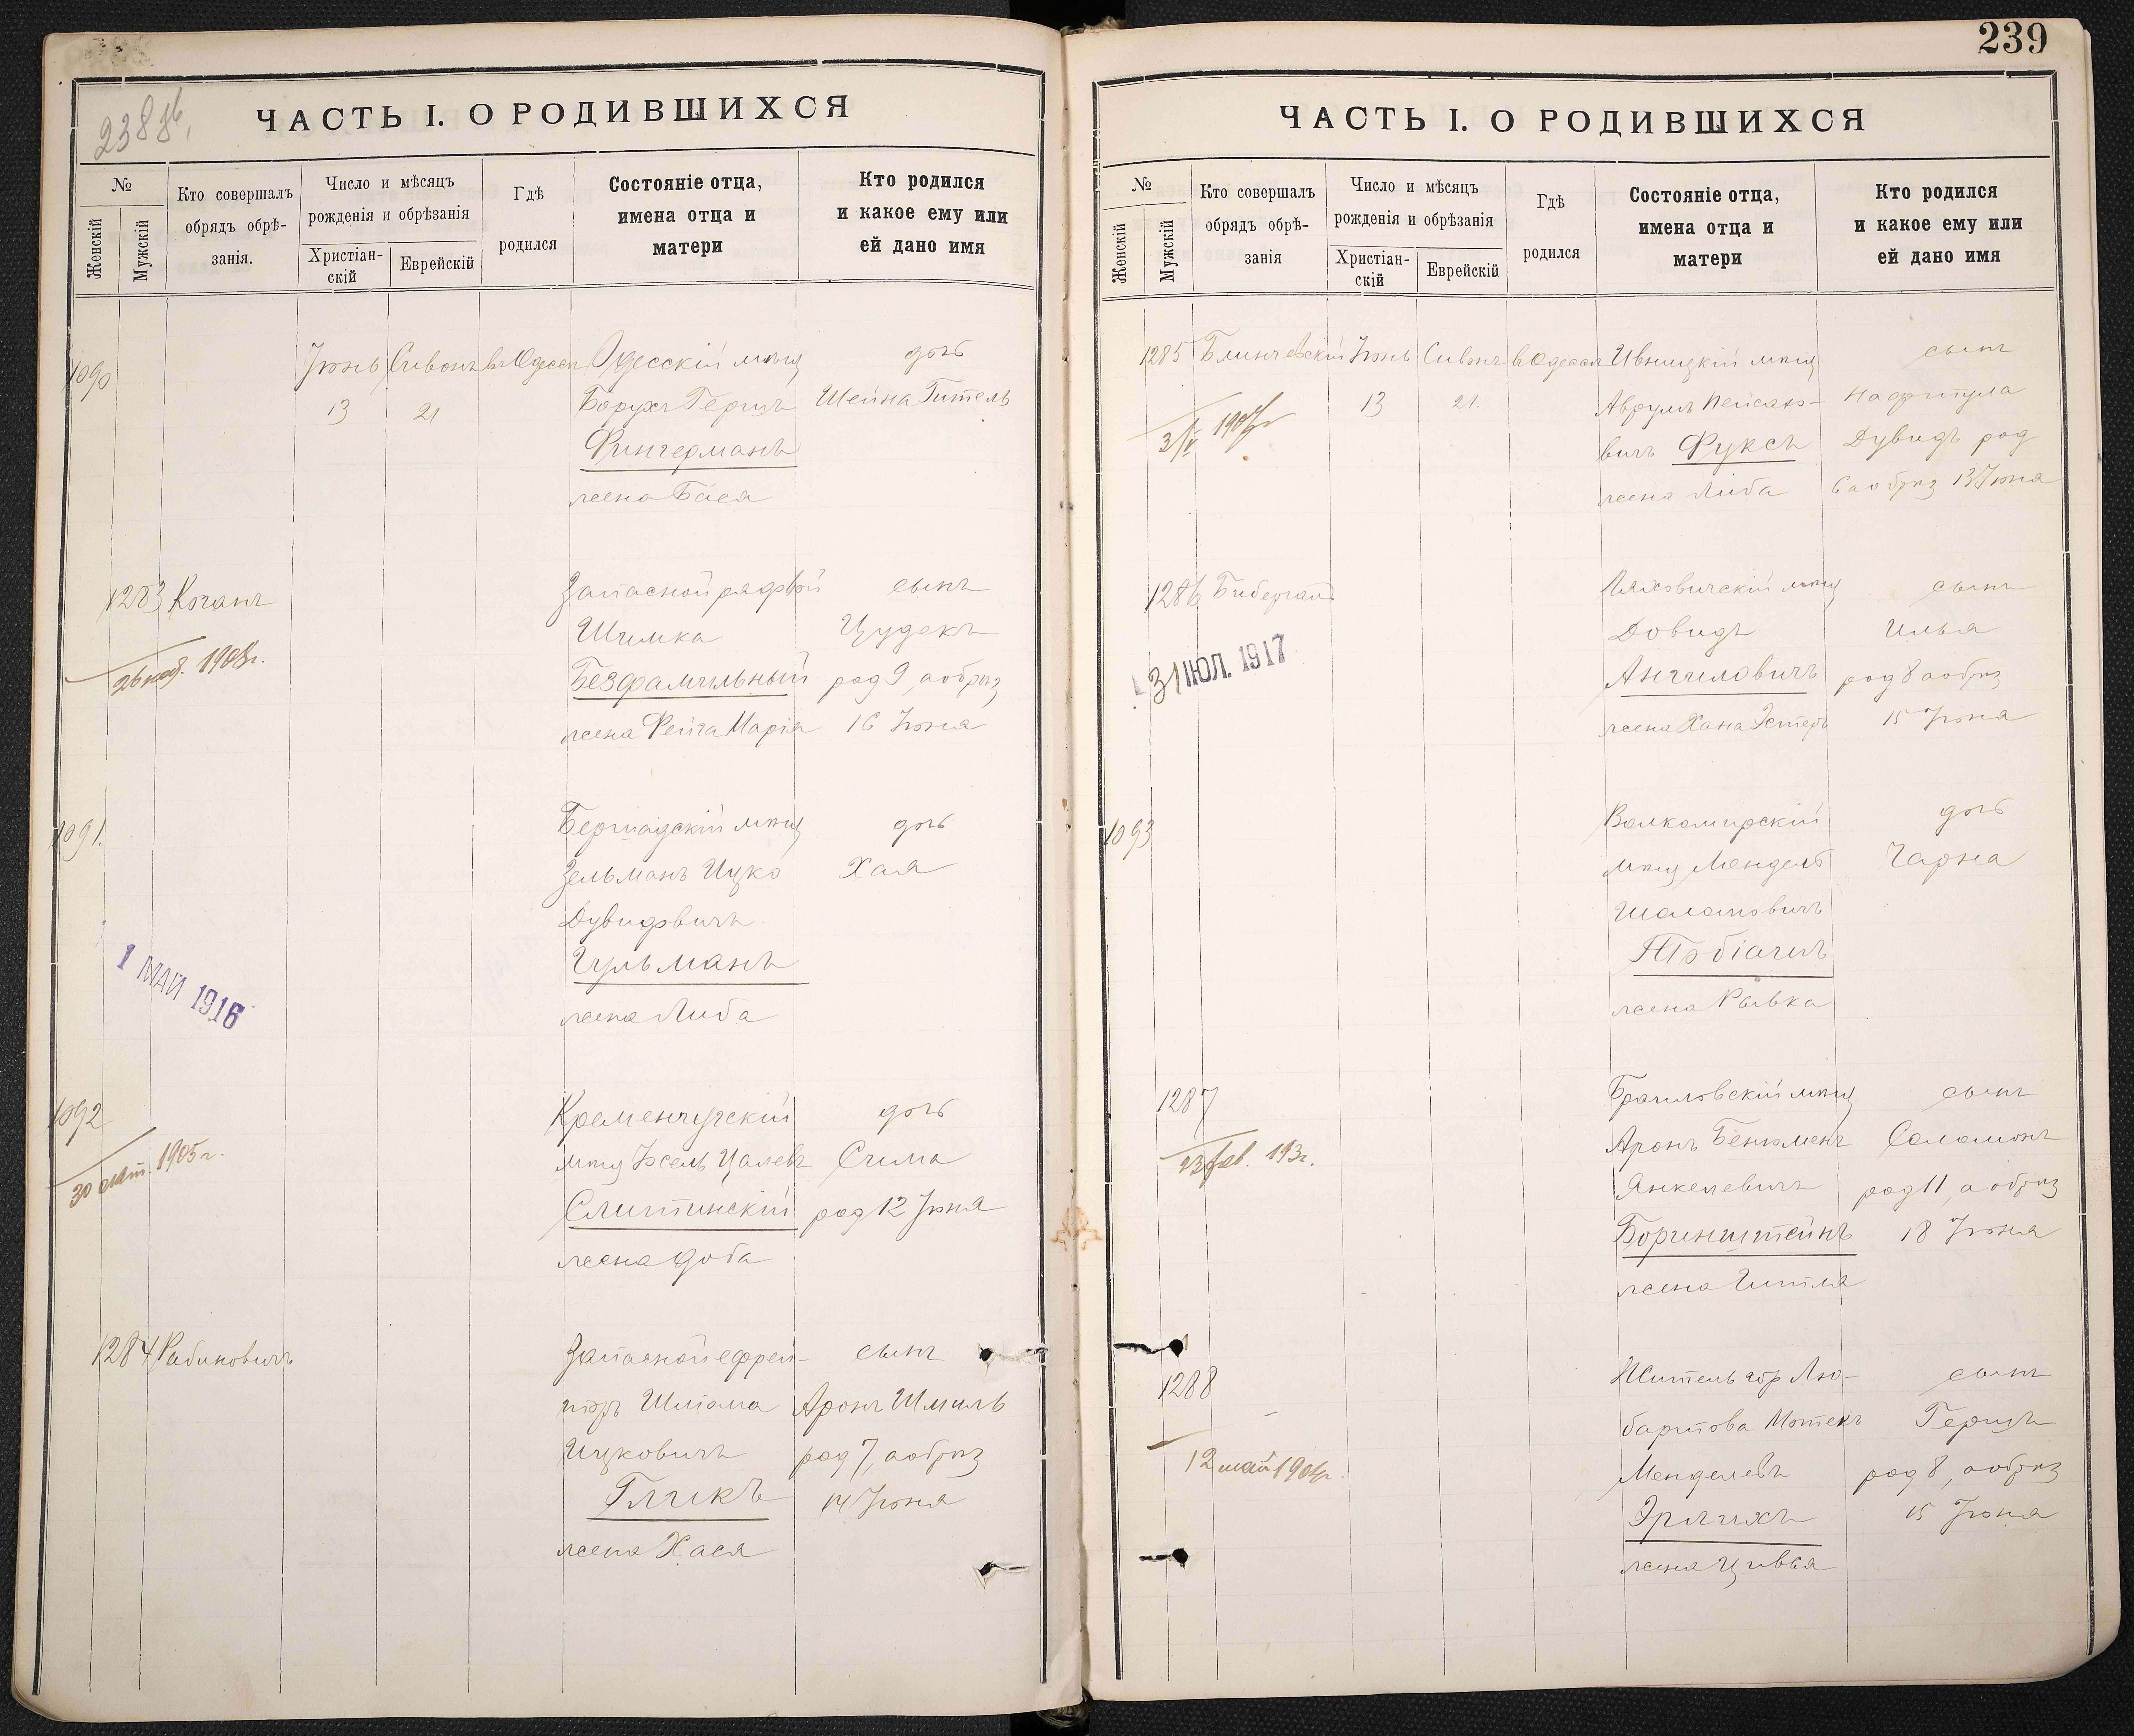 238 об.
ЧАСТЬ I. О РОДИВШИХСЯ
№
Женскій
Мужскій
Кто совершалъ
обрядъ обрѣ-
занія.
Число и мѣсяцъ
рожденія и обрѣзанія
Христіан-
скій
Еврейскій
Гдѣ
родился
Состояніе отца,
имена отца и
матери
Кто родился
и какое ему или
ей дано имя
1090
Іюнь
13
Сивонъ
21
въ Одессѣ
Одесскій мѣщ
Борухъ Гершъ
Фингерманъ
жена Бася
дочь
Шейна Гитель
1283 Коганъ
26 1903г.
Запасной рядовой
Шимка
Безфамильный
жена Фейга Марія
сынъ
Цудекъ
род 9, а обрѣз
16 Іюня
1091.
1 МАЙ 1916
Бершадскій мѣщ
Зельманъ Ицко
Дувидовичъ
Гульманъ
жена Либа
дочь
Хая
1092
30 1905г.
Кременчугскій
мѣщ Іосель Цалевъ
Слитинскій
жена Доба
дочь
Сима
род 12 Іюня
1284 Рабиновичъ
Запасной ефрей-
торъ Шліома
Ицковичъ
Гликъ
жена Хася
сынъ
Аронъ Шмиль
род 7, а обрѣз
14 Іюня
239
ЧАСТЬ I. О РОДИВШИХСЯ
№
Женскій
Мужскій
Кто совершалъ
обрядъ обрѣ-
занія
Число и мѣсяцъ
рожденія и обрѣзанія
Христіан-
скій
Еврейскій
Гдѣ
родился
Состояніе отца,
имена отца и
матери
Кто родился
и какое ему или
ей дано имя
1285 Блинчевскій
Іюнь
13
Сивонъ
21.
въ Одессѣ
Ивницкій мѣщ
Аврумъ Пейсахо-
вичъ Фуксъ
жена Либа
сынъ
Нафтула
Дувидъ род
6 а обрѣз 13 Іюня
1286
31 ІЮЛ. 1917
Ляховичскій мѣщ
Довидъ
Ангиловичъ
жена Хана Эстеръ
сынъ
Илья
род 8 а обрѣз
15 Іюня
1093
Волкомирскій
мѣщ Мендель
Шаломовичъ
жена Рывка
дочь
Чарна
1287
23 фев.
Браиловскій мѣщ
Аронъ Беньюменъ
Янкелевичъ
Боринштейнъ
жена Гитля
сынъ
Соломонъ
род 11, а обрѣз
18 Іюня
1288
12 май
Житель гор Лю-
бартова Мотекъ
Менделевъ
Эрлихъ
жена Цивья
сынъ
Гершъ
род 8, а обрѣз
15 Іюня